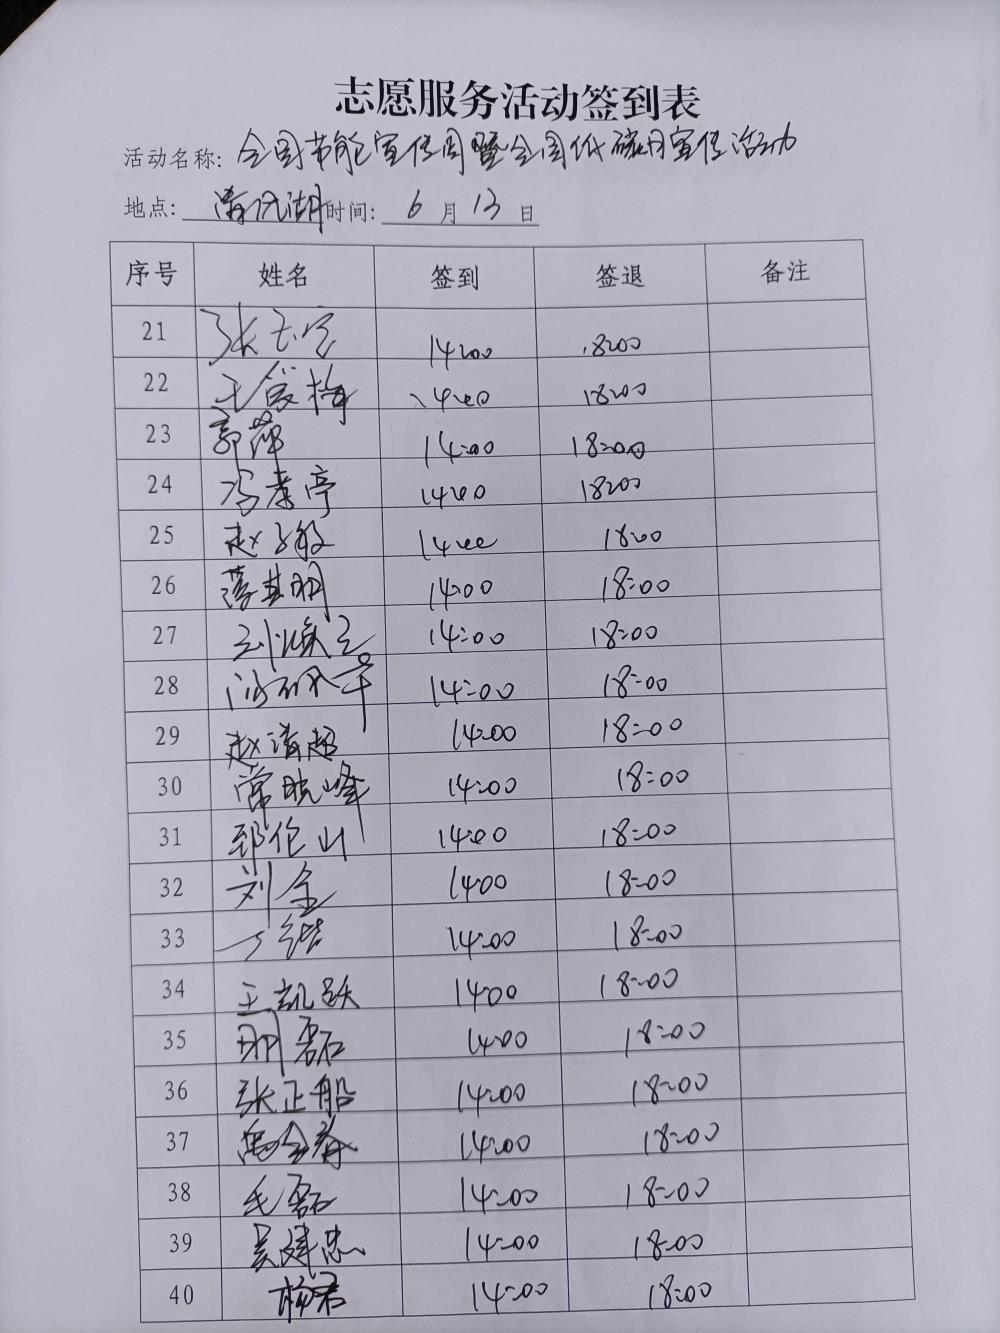 志愿服务活动签到表
活动名称: 全国节能宣传周暨全国低碳日宣传活动
地点: 清风湖 时间: 6 月 13 日
序号 姓名 签到 签退 备注
21 张 14:00 18:00
22 王 梅 14:00 18:00
23 郭萍 14:00 18:00
24 冯孝亭 14:00 18:00
25 赵 敏 14:00 18:00
26 明 14:00 18:00
27 刘焕 14:00 18:00
28 14:00 18:00
29 赵清超 14:00 18:00
30 常晓峰 14:00 18:00
31 山 14:00 18:00
32 刘全 14:00 18:00
33 14:00 18:00
34 王凯跃 14:00 18:00
35 磊 14:00 18:00
36 张正船 14:00 18:00
37 春 14:00 18:00
38 毛磊 14:00 18:00
39 吴建忠 14:00 18:00
40 杨君 14:00 18:00